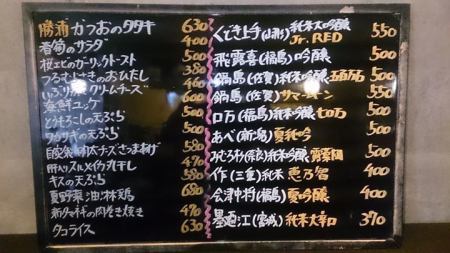 勝浦 かつおのタタキ 630
春筍のサラダ 400
桜エビのガーリックトースト 500
つるむらさきのおひたし 380
いぶりクリームチーズ
海鮮ユッケ 600
とうもろこしの天ぷら 500
ワカサギの天ぷら 500
明太チーズさつま揚げ
肝入スルメイカ丸干し 470
キスの天ぷら 580
夏野菜油淋鶏 680
新タマネギの肉巻き焼き 470
タコライス 630
くどき上手(山形)純米大吟醸 Jr. RED 550
飛露喜(福島)吟醸 500
鍋島(佐賀)純米吟醸 五百万石 500
鍋島(佐賀)サマームーン 550
ロ万(福島)純米吟醸 七ロ万 500
あべ(新潟)夏純吟 500
みむろ杉(奈良)純米吟醸 露葉風 500
作(三重)純米 恵乃智 400
会津中将(福島)夏吟醸 400
墨廼江(宮城)純米大辛口 370